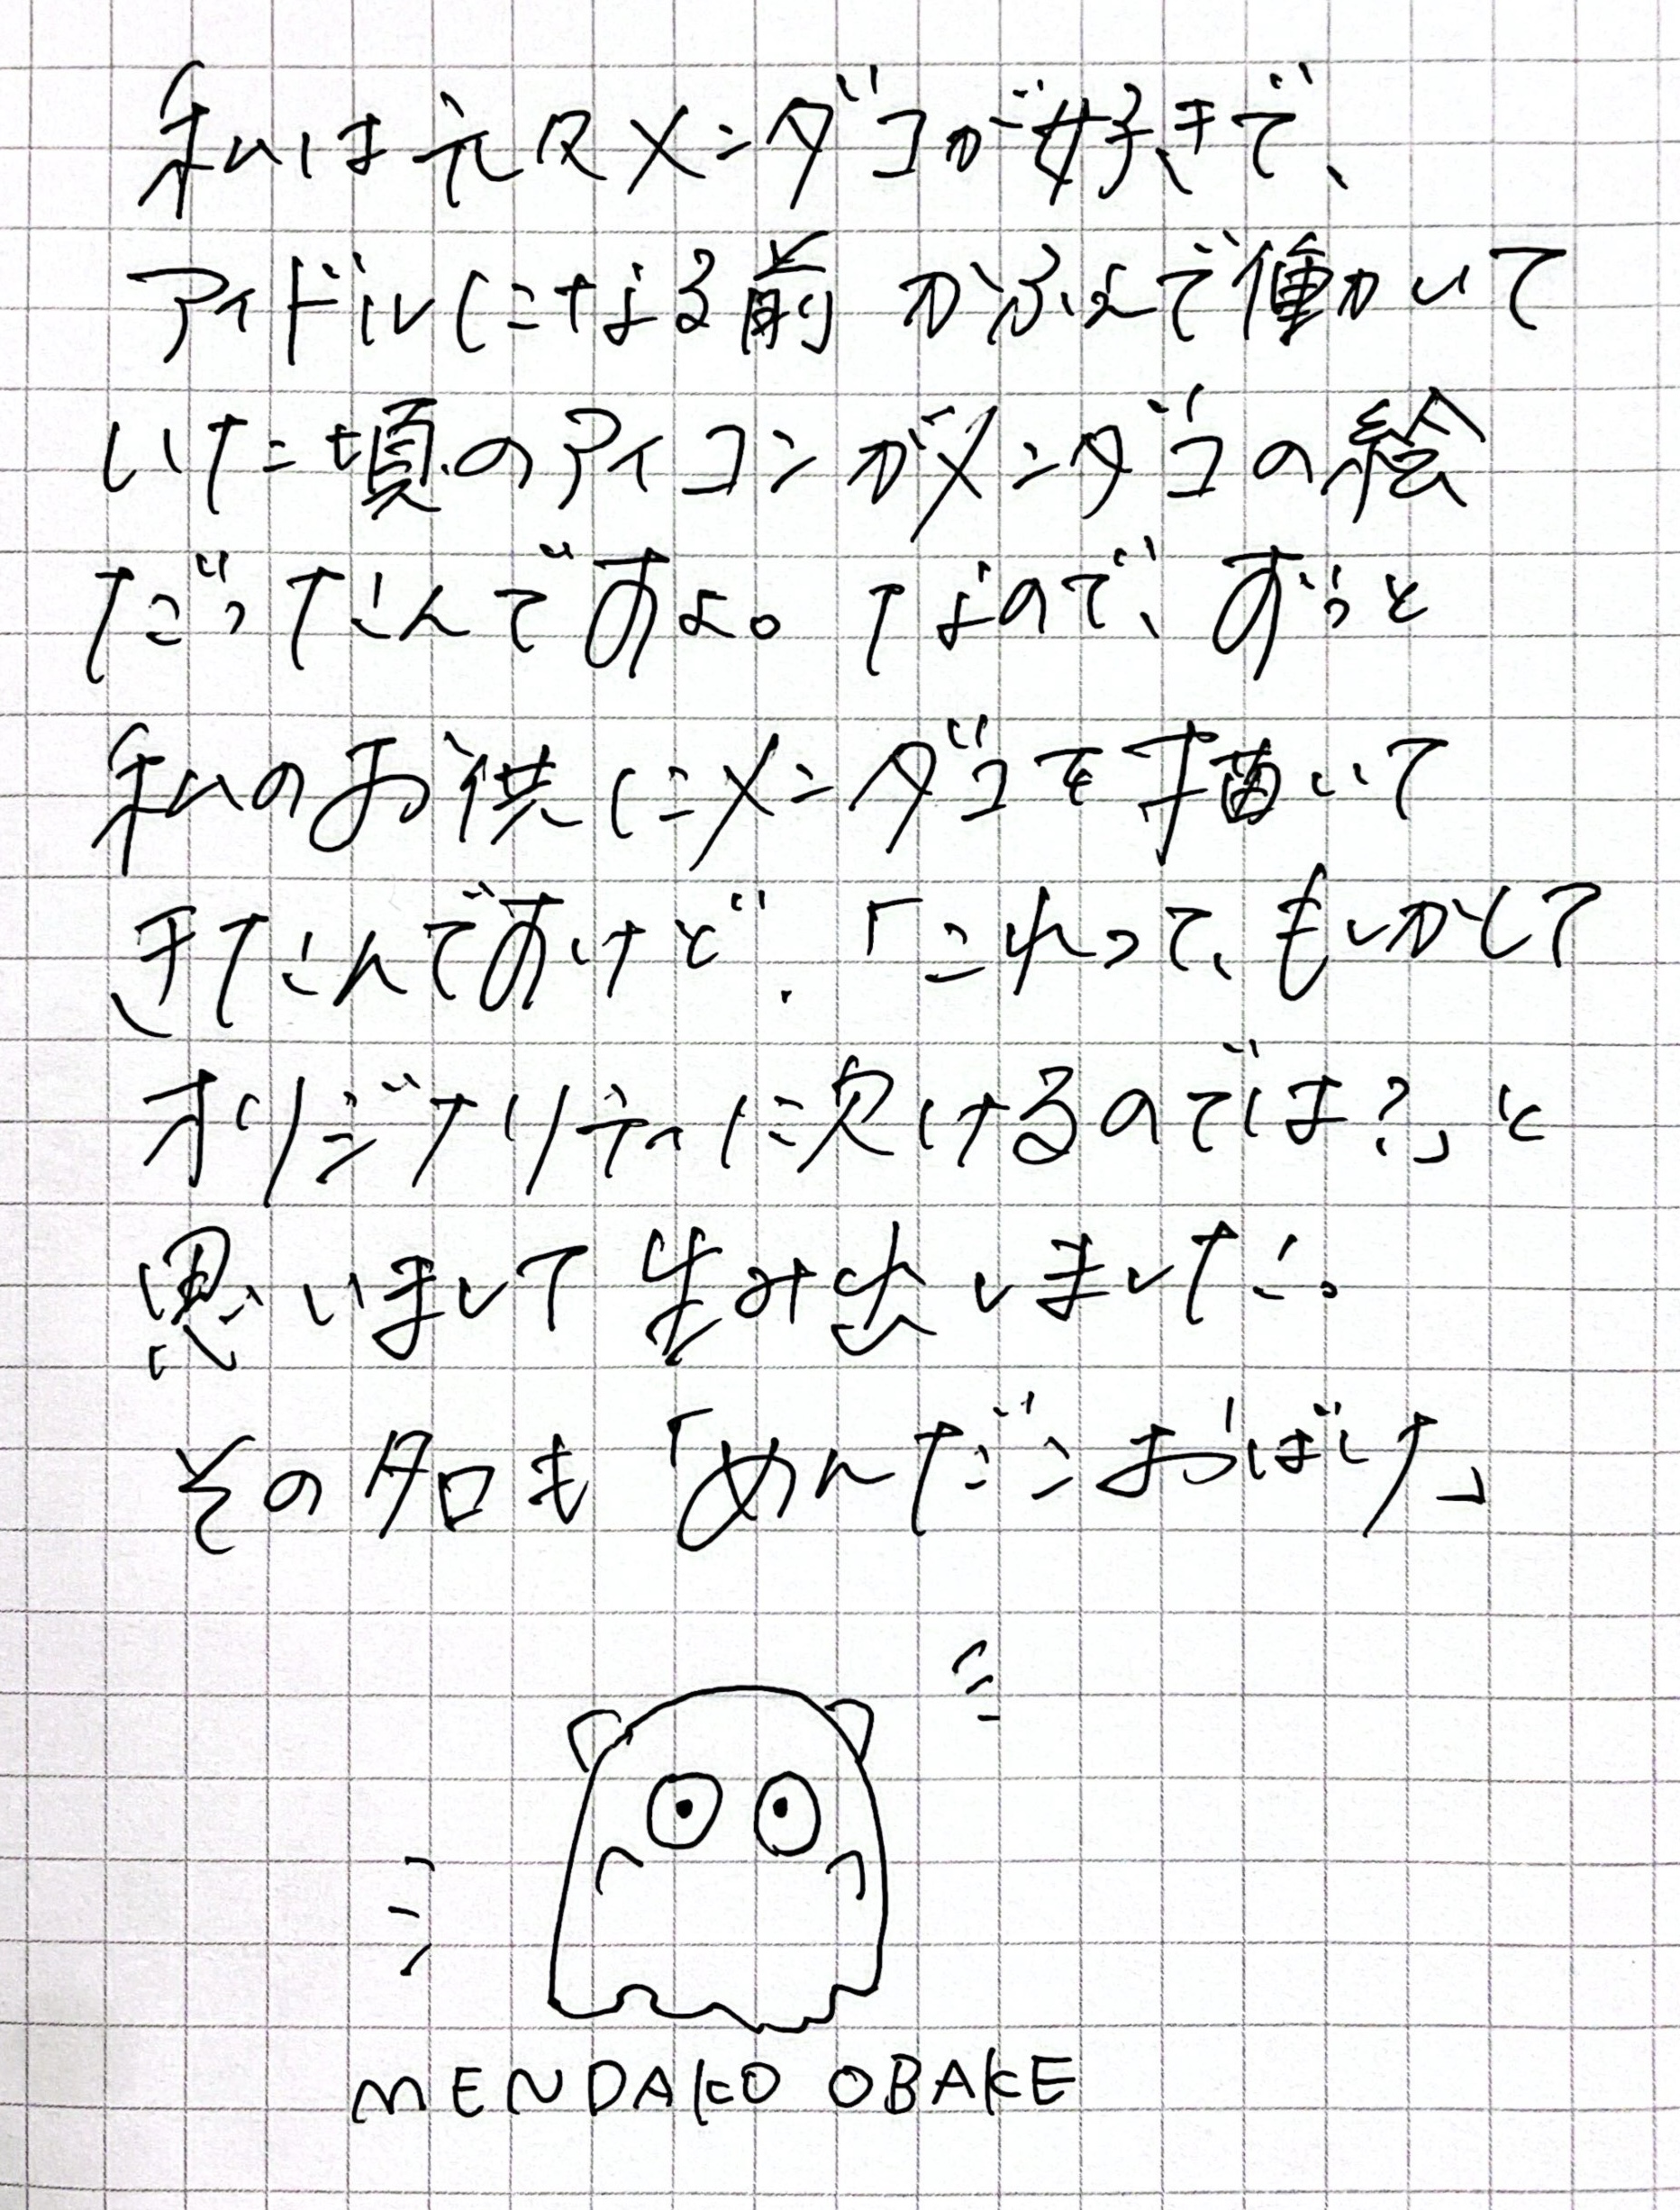 私は元々メンダコが好きで、
アイドルになる前 かふぇで働いて
いた頃のアイコンがメンダコの絵
だったんですよ。なので、ずっと
私のお供にメンダコを描いて
きたんですけど、「これって、もしかして
オリジナリティに欠けるのでは?」と
思いまして生み出しました。
その名も「めんだこおばけ」
MENDAKO OBAKE